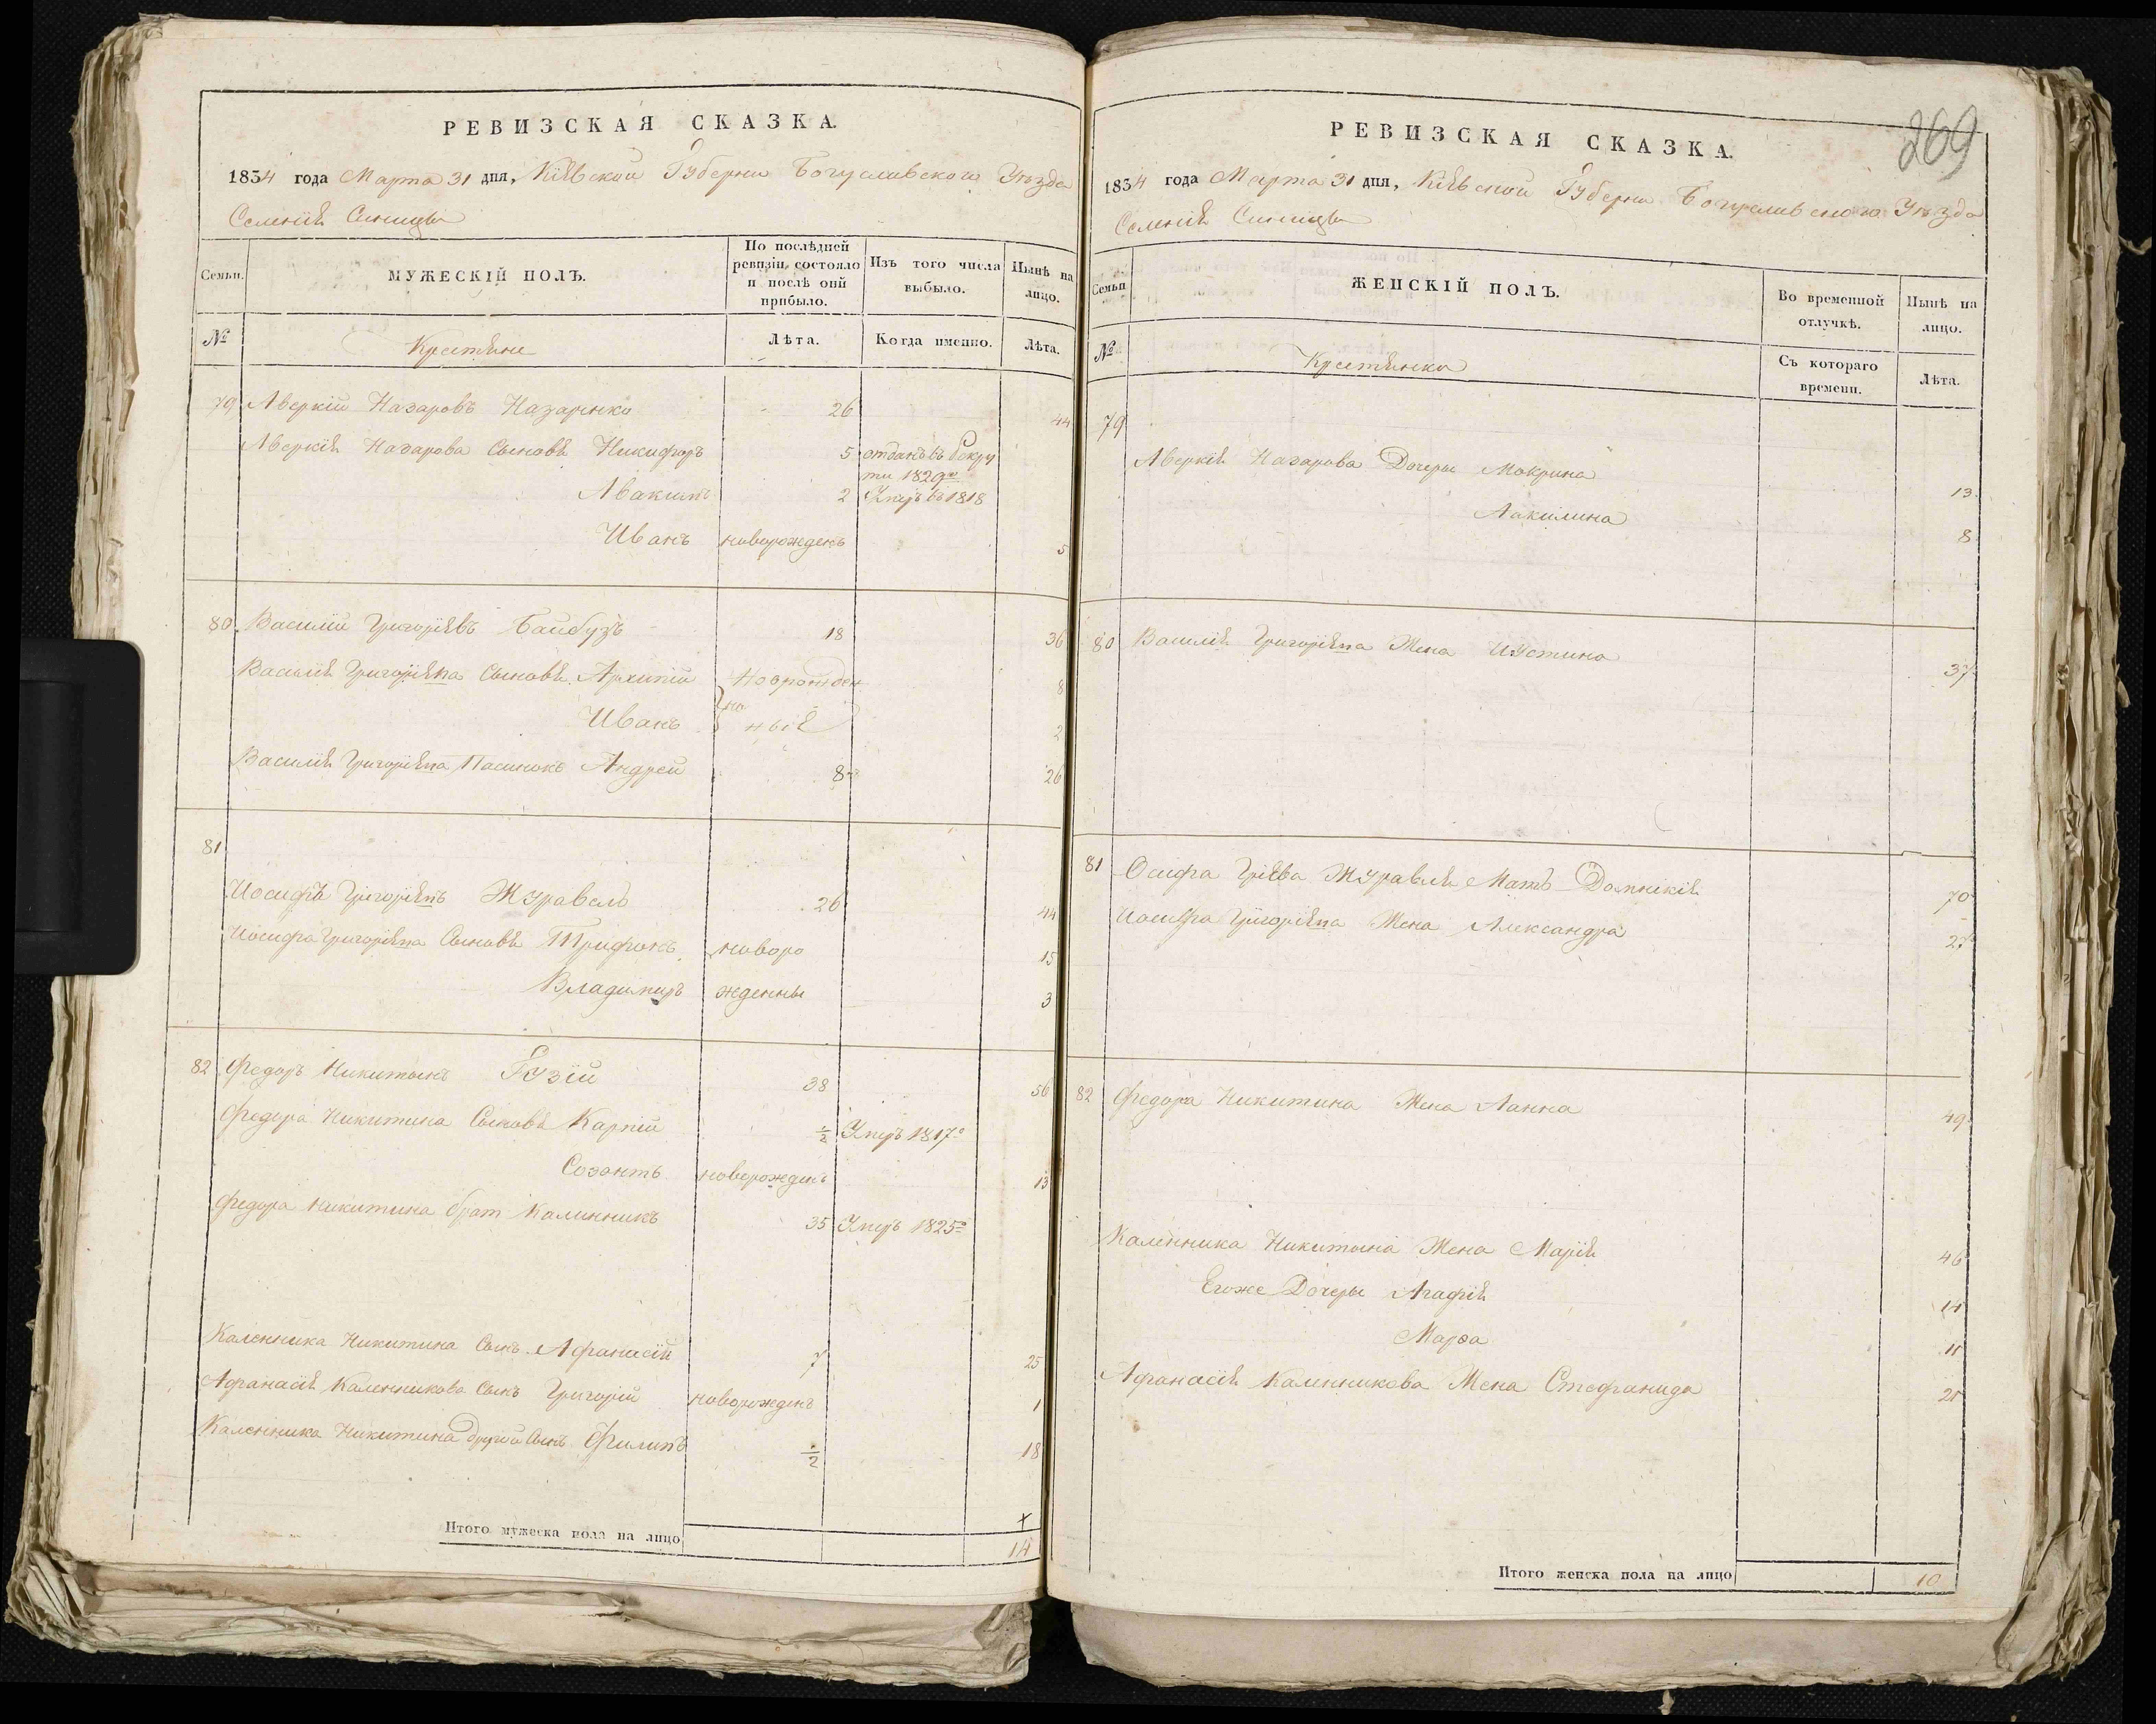 РЕВИЗСКАЯ СКАЗКА.
1834 года Марта 31 дня, Кіевской Губерни Богуславского Уезда
Селенія Синицы
Семьи.
МУЖЕСКІЙ ПОЛЪ.
По послѣдней ревизіи состояло и послѣ оній прибыло.
Изъ того числа выбыло.
Нынѣ на лицо.
№
Крестяне
Лѣта.
Когда именно.
Лѣта.
79 Аверкій Назаровъ Назаренко 26 44
Аверкія Назарова Сыновя Никифоръ 5 отданъ въ Рекру
ти 1829го
Авакимъ 2 Умеръ въ 1818
Иванъ новорожденъ 5
80 Василій Григоріевъ Байбузъ 18 36
Василія Григоріева Сыновя Архипій Новрожден 8
Иванъ но ныі 2
Василія Григоріева Пасинокъ Андрей 8 26
81
Иосифъ Григоріевъ Журавель 26 44
Иосифа Григоріева Сыновя Трифонъ новоро 15
Владимиръ жденны 3
82 Федоръ Никитинъ Гузій 38 56
Федора Никитина Сыновя Карпій ½ Умеръ 1817о
Созонтъ новорожденъ 13
Федора Никитина брат Калинникъ 35 Умеръ 1825о
Каленника Никитина Сынъ Афанасій 7 25
Афанасія Каленникова Сынъ Григорій новорожденъ 1
Каленника Никитина другой Сынъ Филипъ ½ 18
Итого мужеска пола на лицо 14
269
РЕВИЗСКАЯ СКАЗКА.
1834 года Марта 31 дня, Кіевской Губерни Богуславского Уезда
Селенія Синицы
Семьи
ЖЕНСКІЙ ПОЛЪ.
Во временной отлучкѣ.
Нынѣ на лицо.
№
Крестянки
Съ котораго времени.
Лѣта.
79
Аверкія Назарова Дочеры Мокрина 13
Аакилина 8
80 Василія Григоріева Жена Иустина 37
81 Осифа Гріева Журавля Мать Домнікія 70
Иосифа Григоріева Жена Александра 27
82 Федора Никитина Жена Аанна 49
Каленника Никитина Жена Марія 46
Егоже Дочеры Агафія 14
Марѳа 11
Афанасія Каленникова Жена Стефанида 21
Итого женска пола на лицо 10